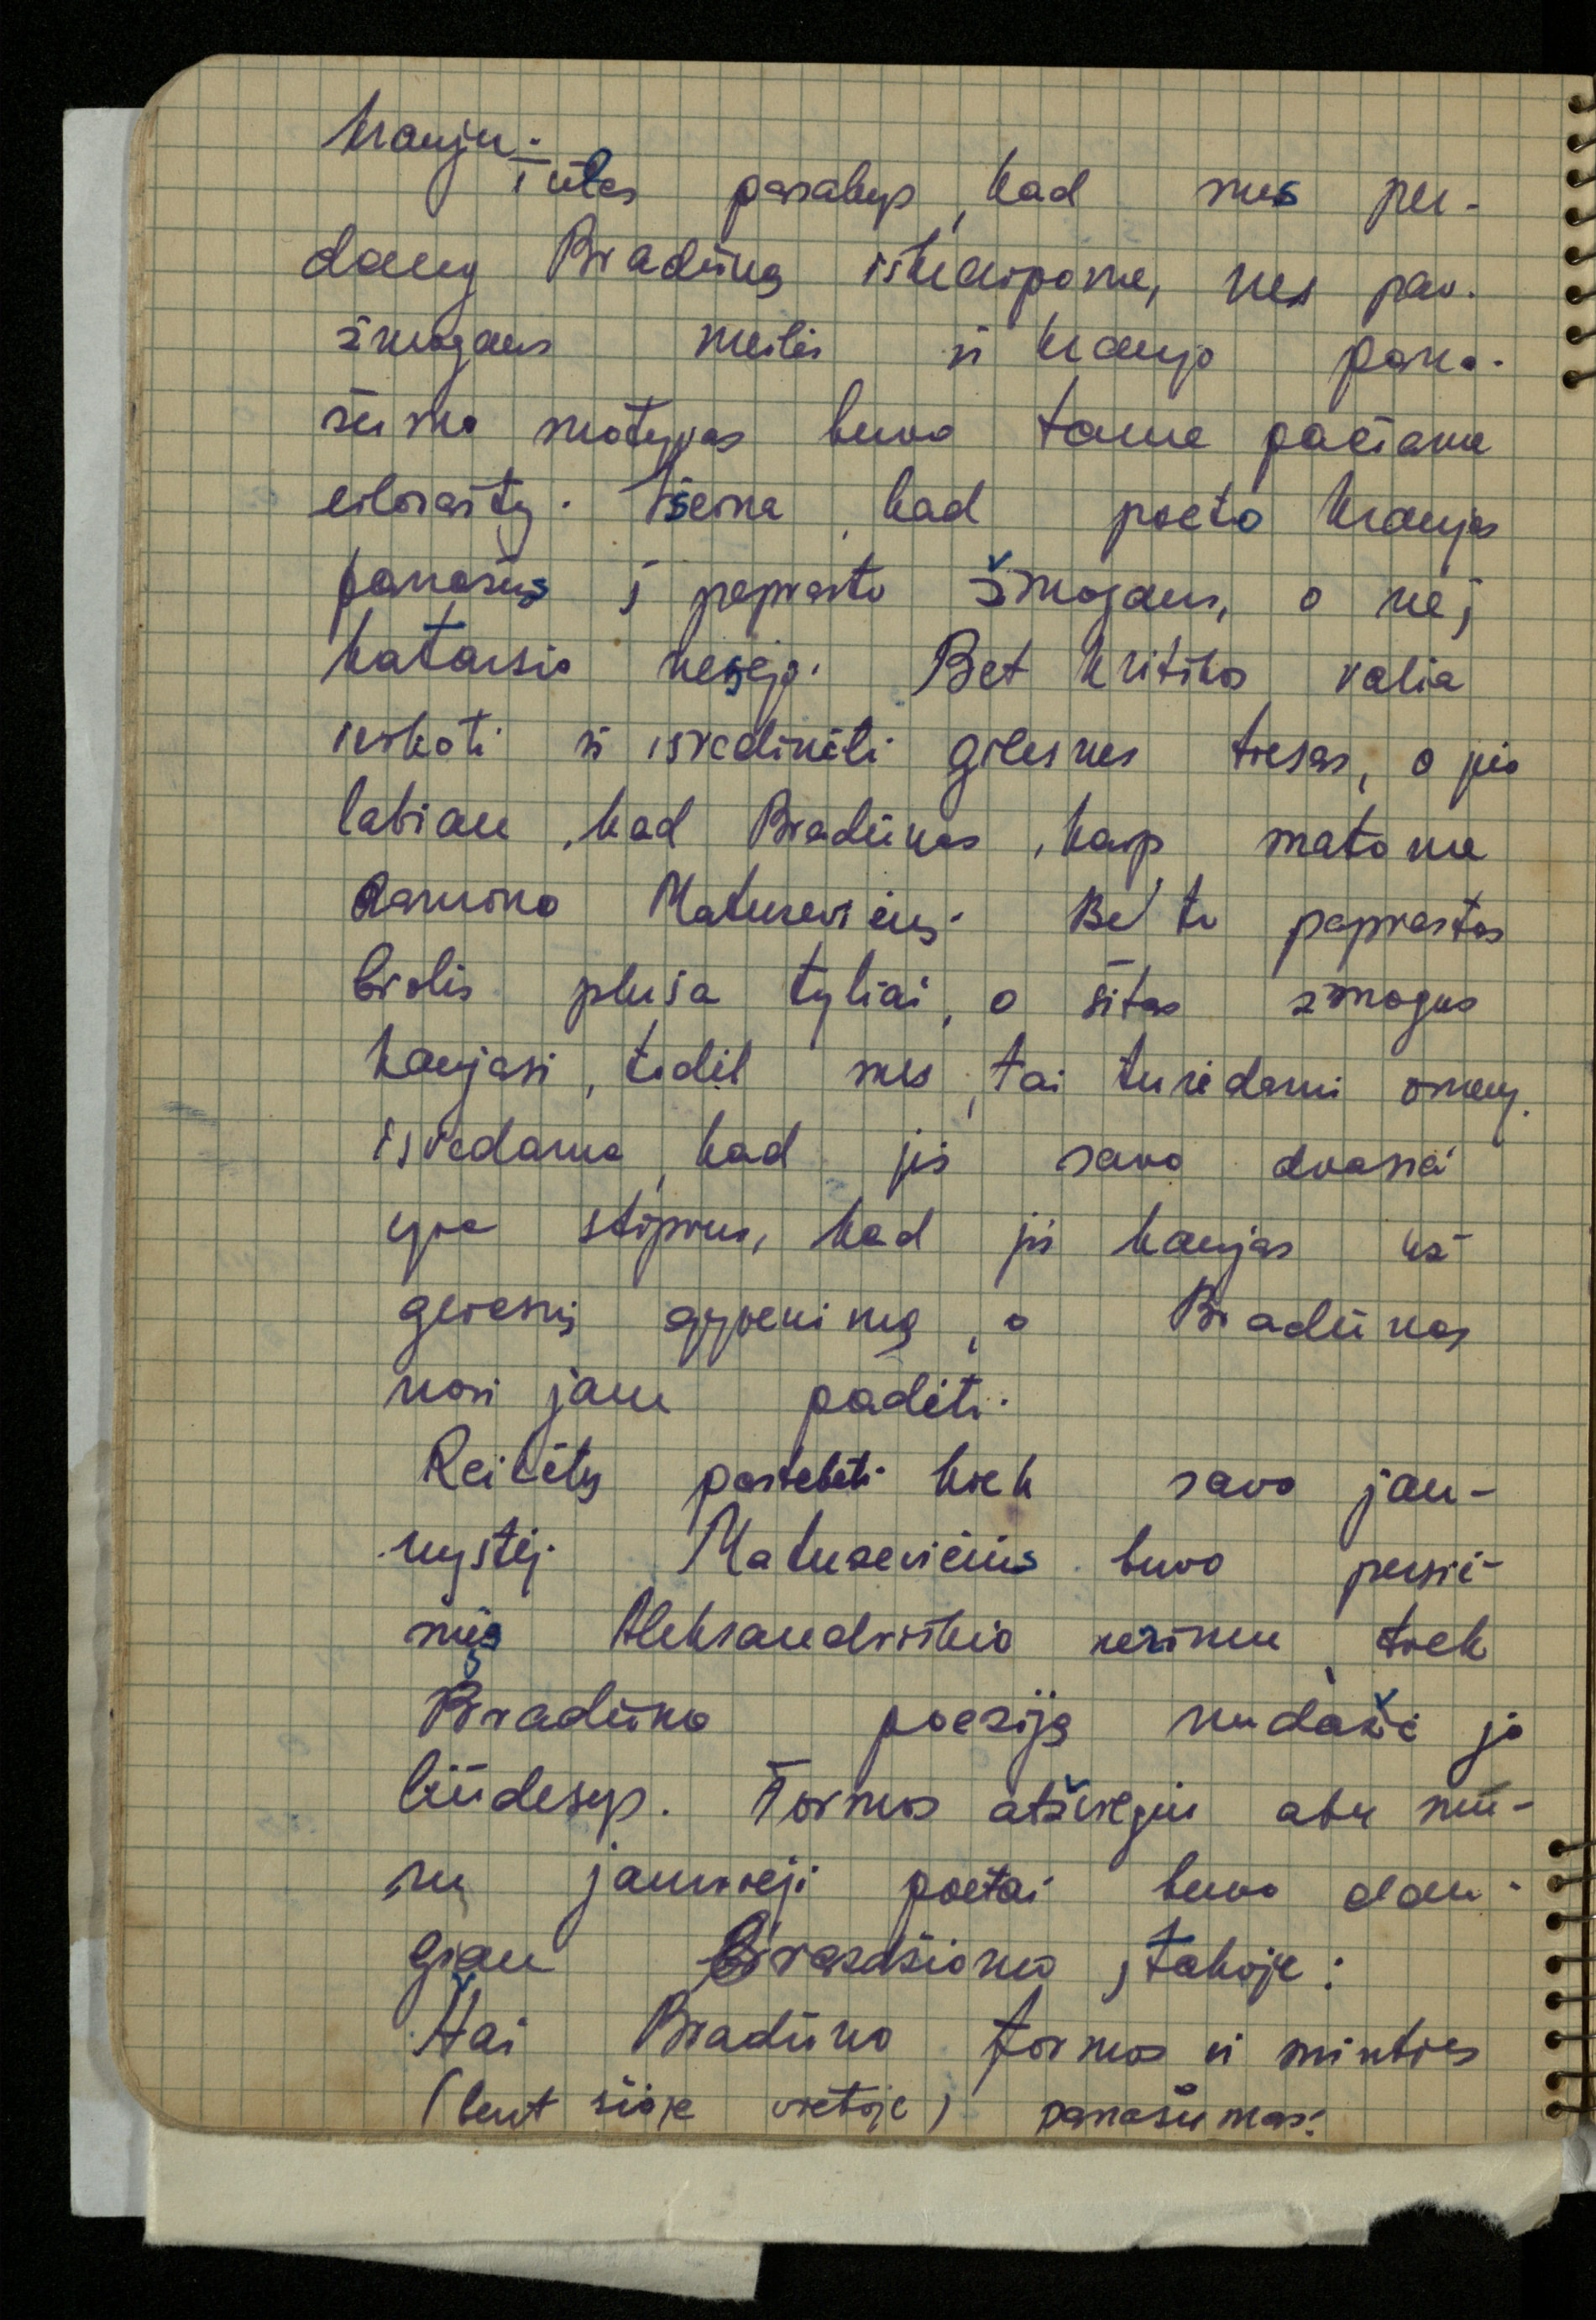 krauju.
Tūlas pasakys, kad mes per-
daug Bradūną iškarpome, nes pav.
žmogaus meilės ir kraujo pana-
šumo motyvas buvo tame pačiame
eilėrašty. Išeina, kad poeto kraujas
panašus į paprasto žmogaus, o nėj
katarsio nešėjo. Bet kritikos valia
ieškoti ir išvedinėti gilesnes tiesas, o juo
labiau, kad Bradūnas, kaip matome
domino Matusevičių. Be to paprastas
brolis pluša tyliai, o šitas žmogus
kaujasi, todėl mes, tai turėdami omeny,
išvedame, kad jis savo dvasia
yra stiprus, kad jis kaujas už
geresnį gyvenimą, o Bradūnas
nori jam padėti.
Reikėtų pastebėti kiek savo jau-
nystėj Matusevičius buvo persiė-
męs Aleksandriškio nerimu, tiek
Bradūno poezija nudažė jo
liūdesys. Formos atžvilgiu abu mū-
sų jaunieji poetai buvo dau-
giau Brazdžionio įtakoje:
Štai Bradūno formos ir minties
(bent šioje vietoje) panašumas: